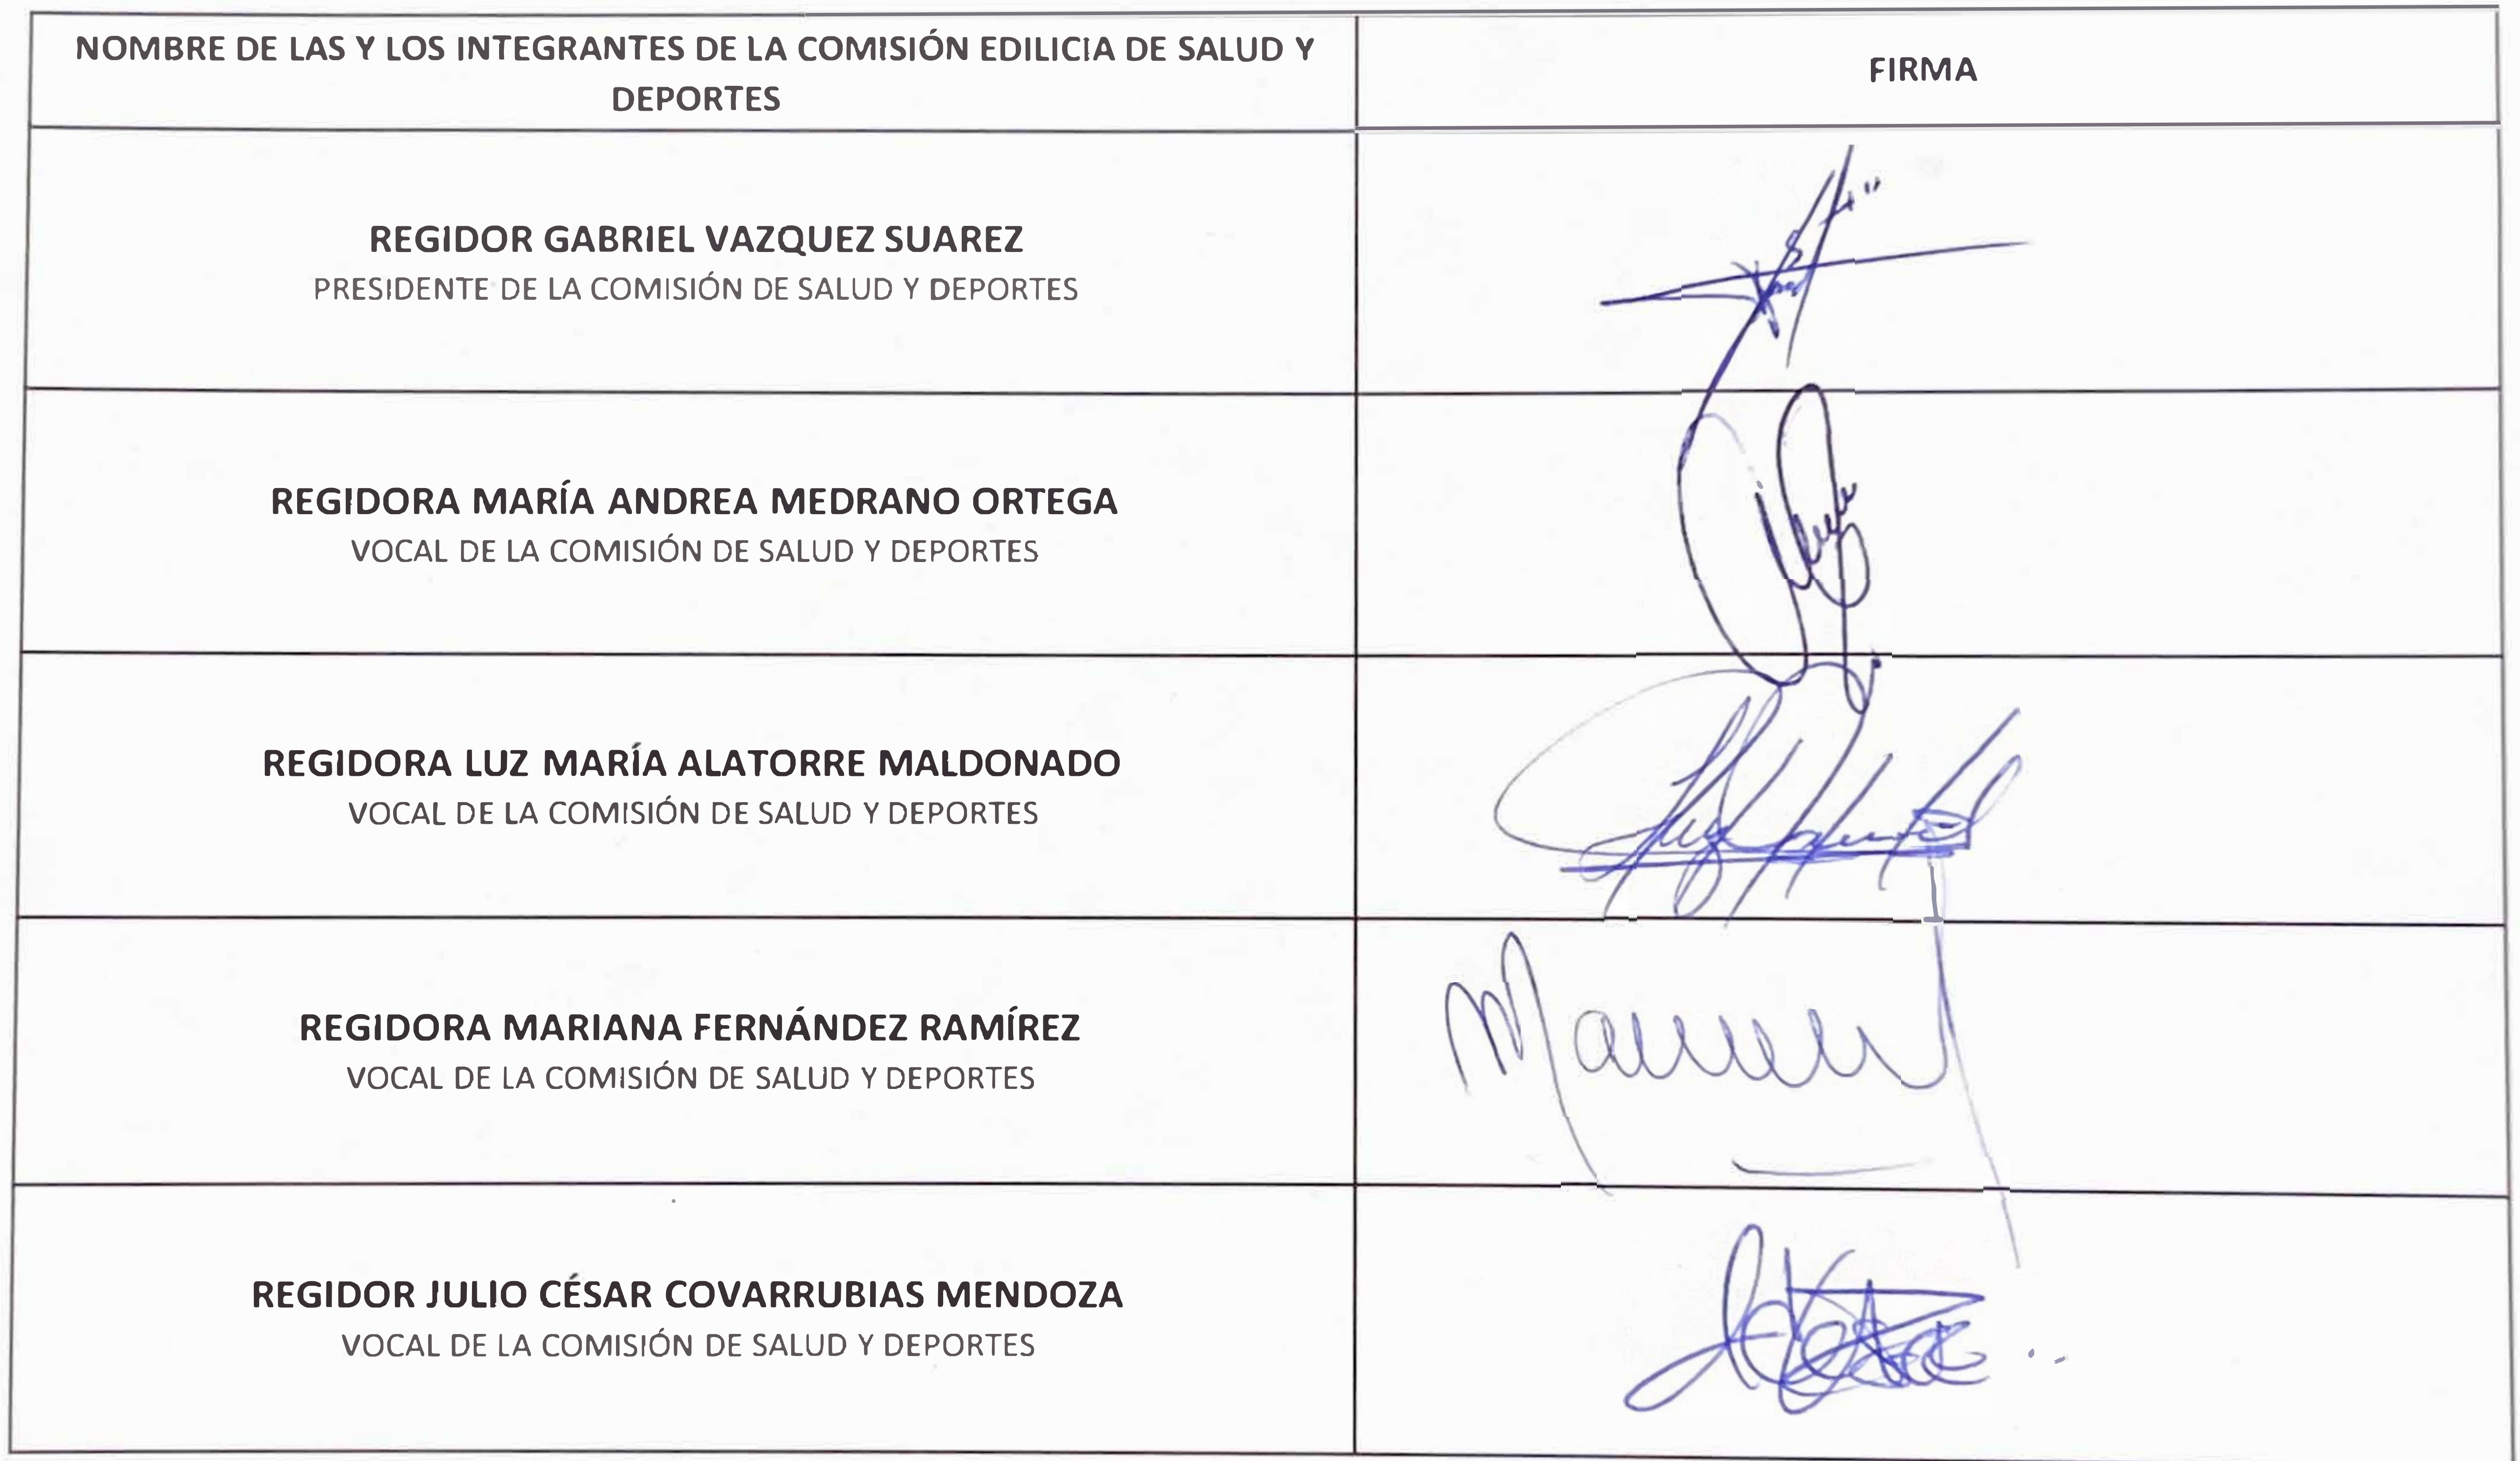 NOMBRE DE LAS Y LOS INTEGRANTES DE LA COMISIÓN EDILICIA DE SALUD Y
DEPORTES
FIRMA
REGIDOR GABRIEL VAZQUEZ SUAREZ
PRESIDENTE DE LA COMISIÓN DE SALUD Y DEPORTES
REGIDORA MARÍA ANDREA MEDRANO ORTEGA
VOCAL DE LA COMISIÓN DE SALUD Y DEPORTES
REGIDORA LUZ MARÍA ALATORRE MALDONADO
VOCAL DE LA COMISIÓN DE SALUD Y DEPORTES
REGIDORA MARIANA FERNÁNDEZ RAMÍREZ
VOCAL DE LA COMISIÓN DE SALUD Y DEPORTES
REGIDOR JULIO CÉSAR COVARRUBIAS MENDOZA
VOCAL DE LA COMISIÓN DE SALUD Y DEPORTES